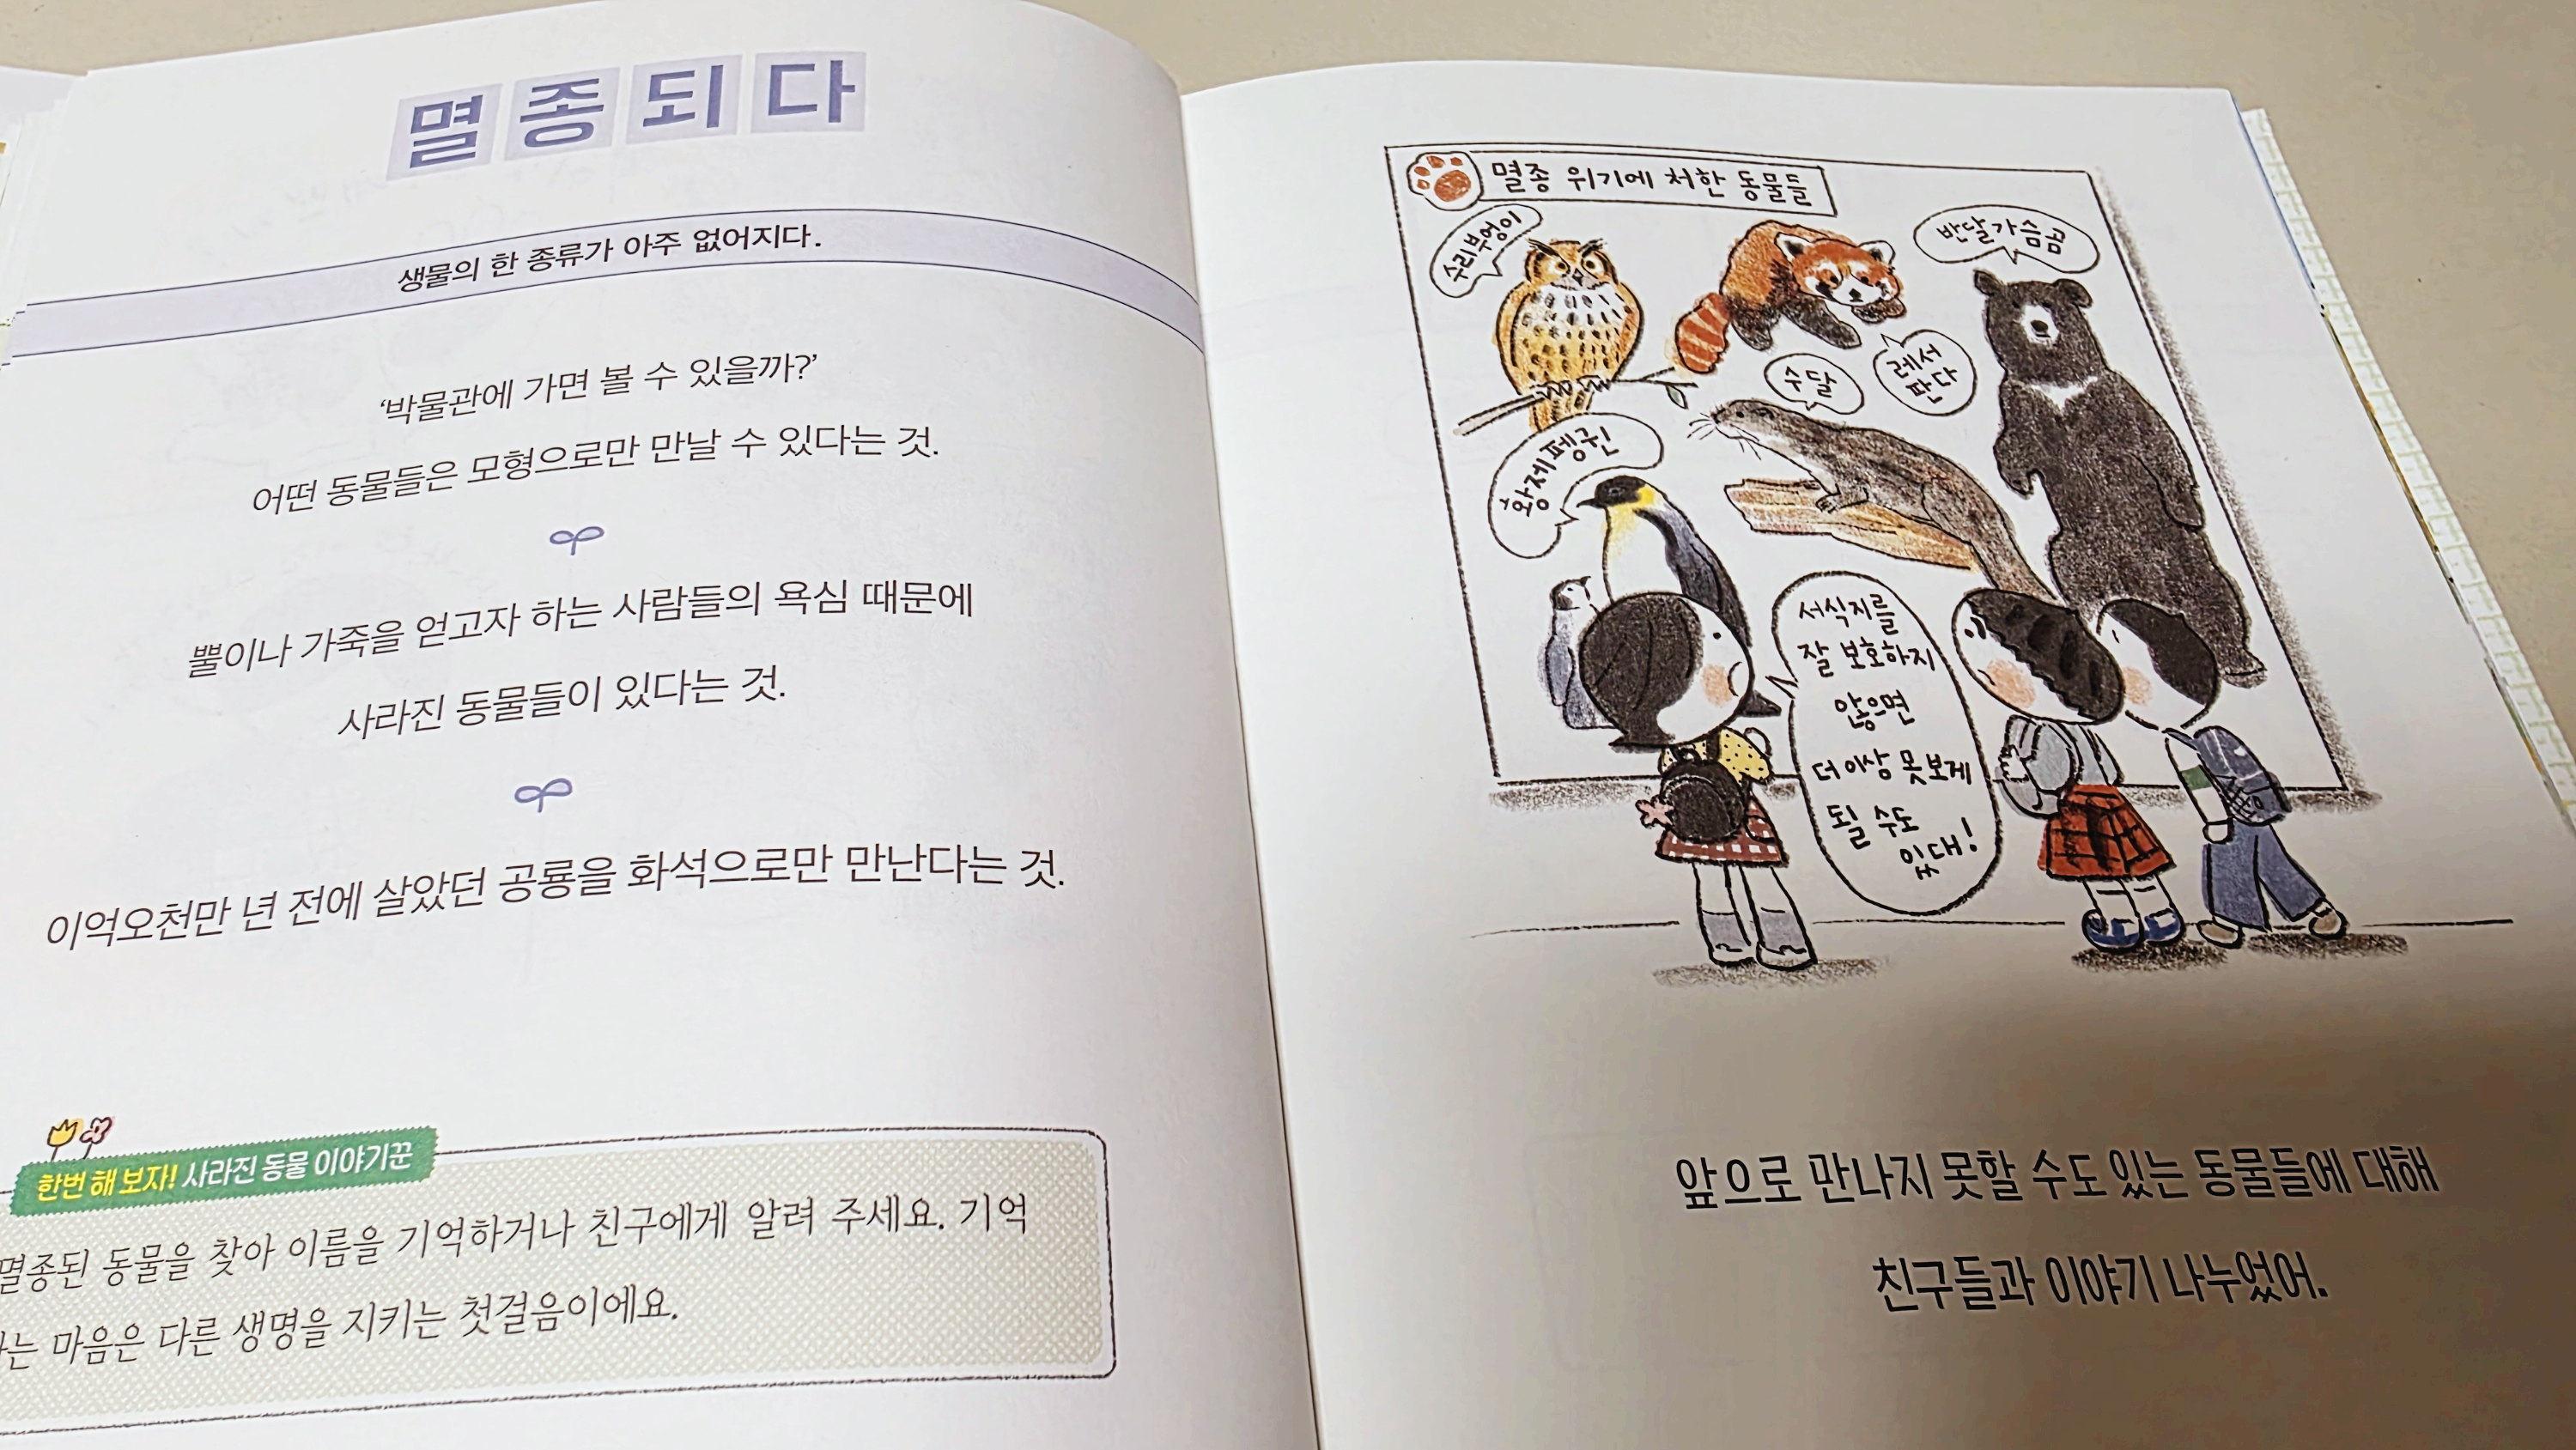 멸종되다
생물의 한 종류가 아주 없어지다.
‘박물관에 가면 볼 수 있을까?’
어떤 동물들은 모형으로만 만날 수 있다는 것.
뿔이나 가죽을 얻고자 하는 사람들의 욕심 때문에
사라진 동물들이 있다는 것.
이억오천만 년 전에 살았던 공룡을 화석으로만 만난다는 것.
한번 해 보자! 사라진 동물 이야기꾼
멸종된 동물을 찾아 이름을 기억하거나 친구에게 알려 주세요. 기억
는 마음은 다른 생명을 지키는 첫걸음이에요.
멸종 위기에 처한 동물들
수리부엉이
반달가슴곰
레서
판다
수달
황제펭귄
서식지를
잘 보호하지
않으면
더 이상 못 보게
될 수도
있대!
앞으로 만나지 못할 수도 있는 동물들에 대해
친구들과 이야기 나누었어.